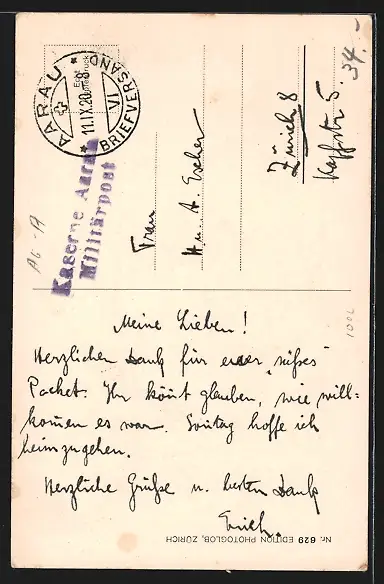 AARAU
11.IX.20-8
VI
BRIEFVERSAND
Kaserne Aarau
Militärpost
Frau
H. u. A. Escher
Zürich 8
34.-
A6-A
1002
Meine Lieben!
Herzlichen Dank für euer "süsses"
Packet. Ihr könnt glauben, wie will=
kommen es war. Sontag hoffe ich
heimzugehen.
Herzliche Grüße u. besten Dank
Erich.
Nr. 629 EDITION PHOTOGLOB, ZÜRICH